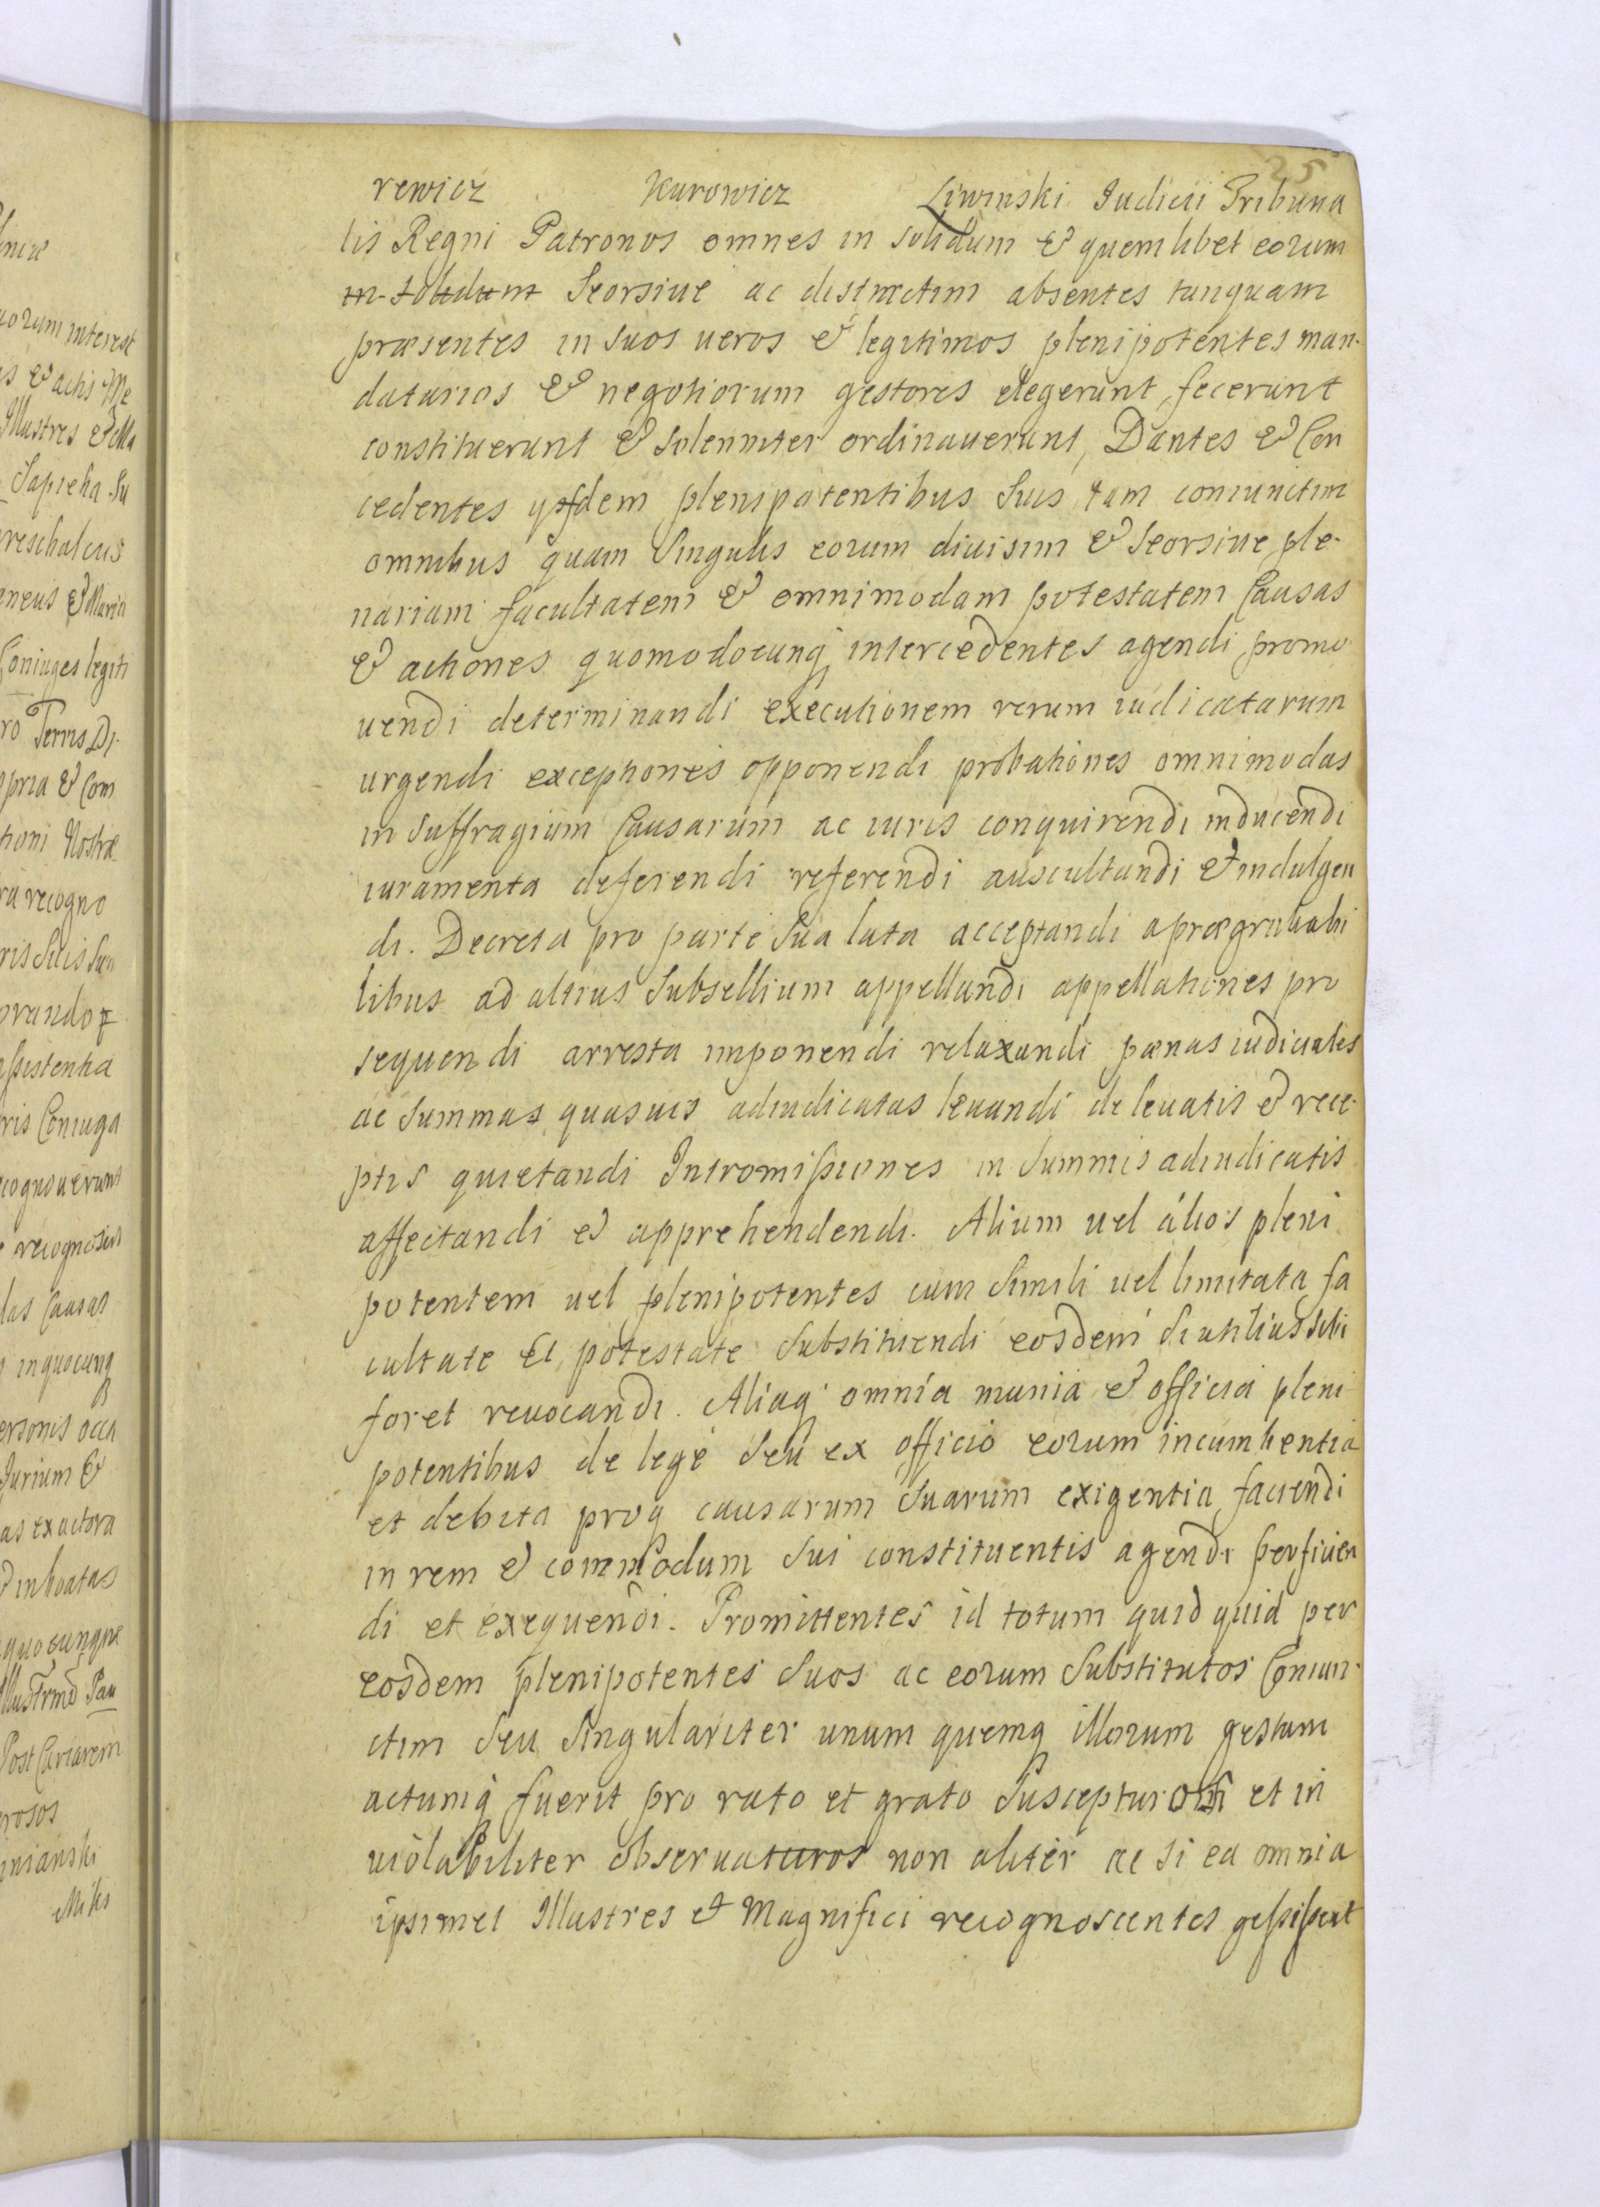 25
rewicz Kurowicz Liwinski Iudicii Tribuna
lis Regni Patronos omnes in solidum & quemlibet eorum
in solidum Seorsiue ac distinctim absentes tanquam
præsentes in suos ueros & legitimos plenipotentes man-
datarios & negotiorum gestores elegerunt, fecerunt
constituerunt & solenniter ordinauerunt, Dantes & Con
cedentes ysdem plenipotentibus Suis tam coniunctim
omnibus quam Singulis eorum diuisim & Seorsiue ple-
nariam facultatem & omnimodam potestatem Causas
& actiones quomodocunq intercedentes agendi promo
uendi determinandi executionem rerum iudicatarum
urgendi exceptiones opponendi probationes omnimodas
in Suffragium Causarum ac iuris conquirendi inducendi
iuramenta deferendi referendi auscultandi & indulgen
di. Decreta pro parte Sua lata acceptandi a prægrauabi
libus ad altius Subsellium appellandi appellationes pro
sequendi arresta imponendi relaxandi pænas iudiciales
ac Summas quasuis adiudicatas leuandi de leuatis & rece-
ptis quietandi Intromissiones in Summis adiudicatis
affectandi & apprehendendi. Alium uel alios pleni
potentem uel plenipotentes cum Simili uel limitata fa
cultate Et potestate Substituendi eosdem Si utilius Sibi
foret reuocandi. Aliaq omnia munia & officia pleni
potentibus de lege Seu ex officio eorum incumbentia
et debita proq causarum Suarum exigentia faciendi
in rem & commodum Sui constituentis agendi perficien
di et exequendi. Promittentes id totum quid quid per
eosdem plenipotentes Suos ac eorum Substitutos Coniun-
ctim Seu Singulariter unum quemq illorum gestum
actumq fuerit pro rato et grato Suscepturos et in
uiolabiliter obseruaturos non aliter ac si ea omnia
ipsimet Illustres & Magnifici recognoscentes gessissent